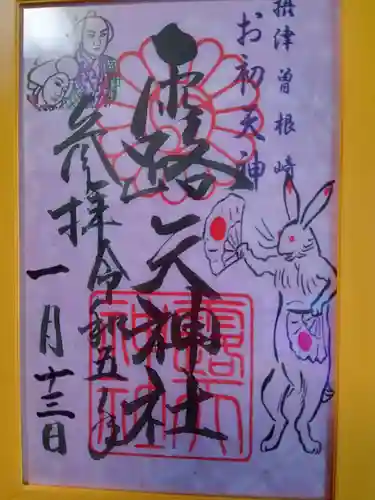 摂津曽根崎
お初天神
露天神社
参拝令和五年
一月十三日
露天神社